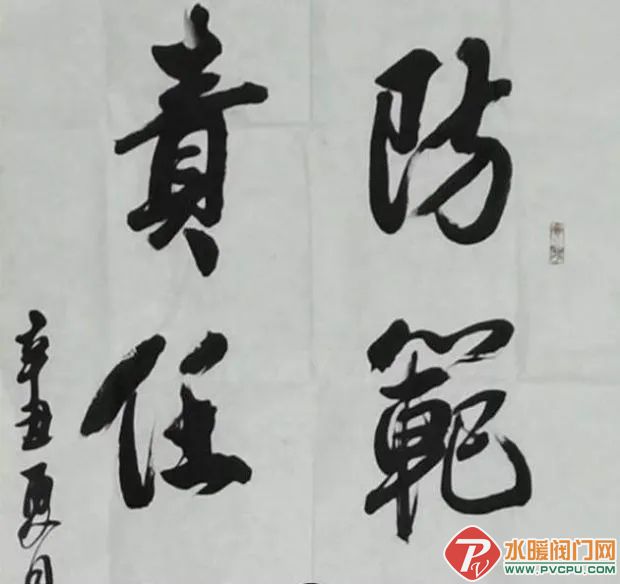 防範
責任
辛丑夏月
水暖阀门网
WWW.PVCPU.COM